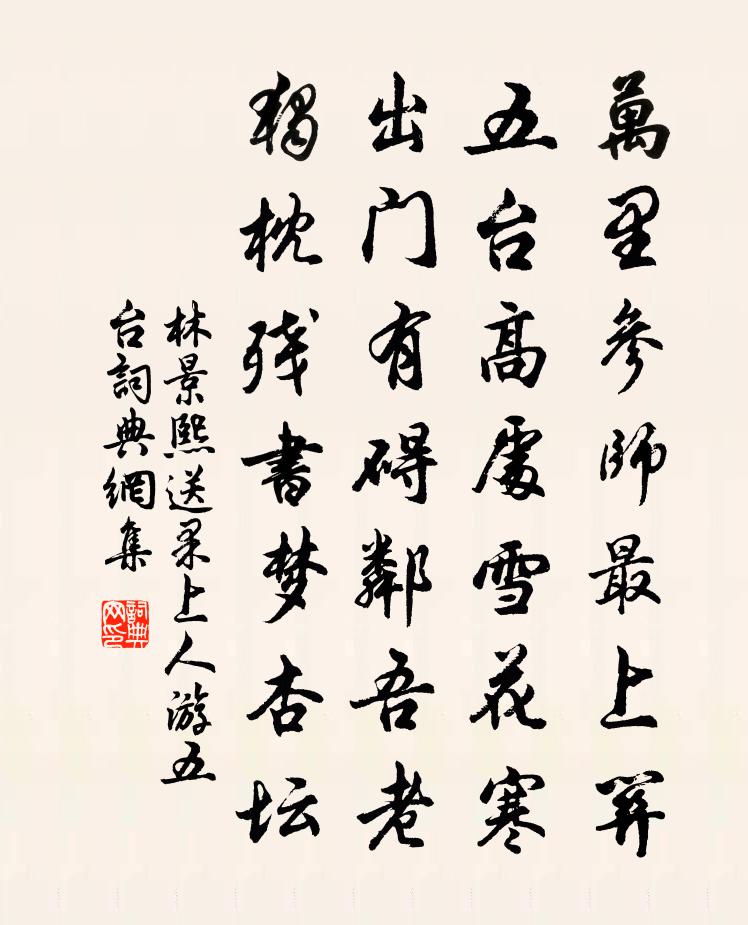 萬里參師最上關
五台高處雪花寒
出门有碍鄰吾老
獨枕残書梦杏坛
林景熙送杲上人游五
台詞典網集
詞典
网印